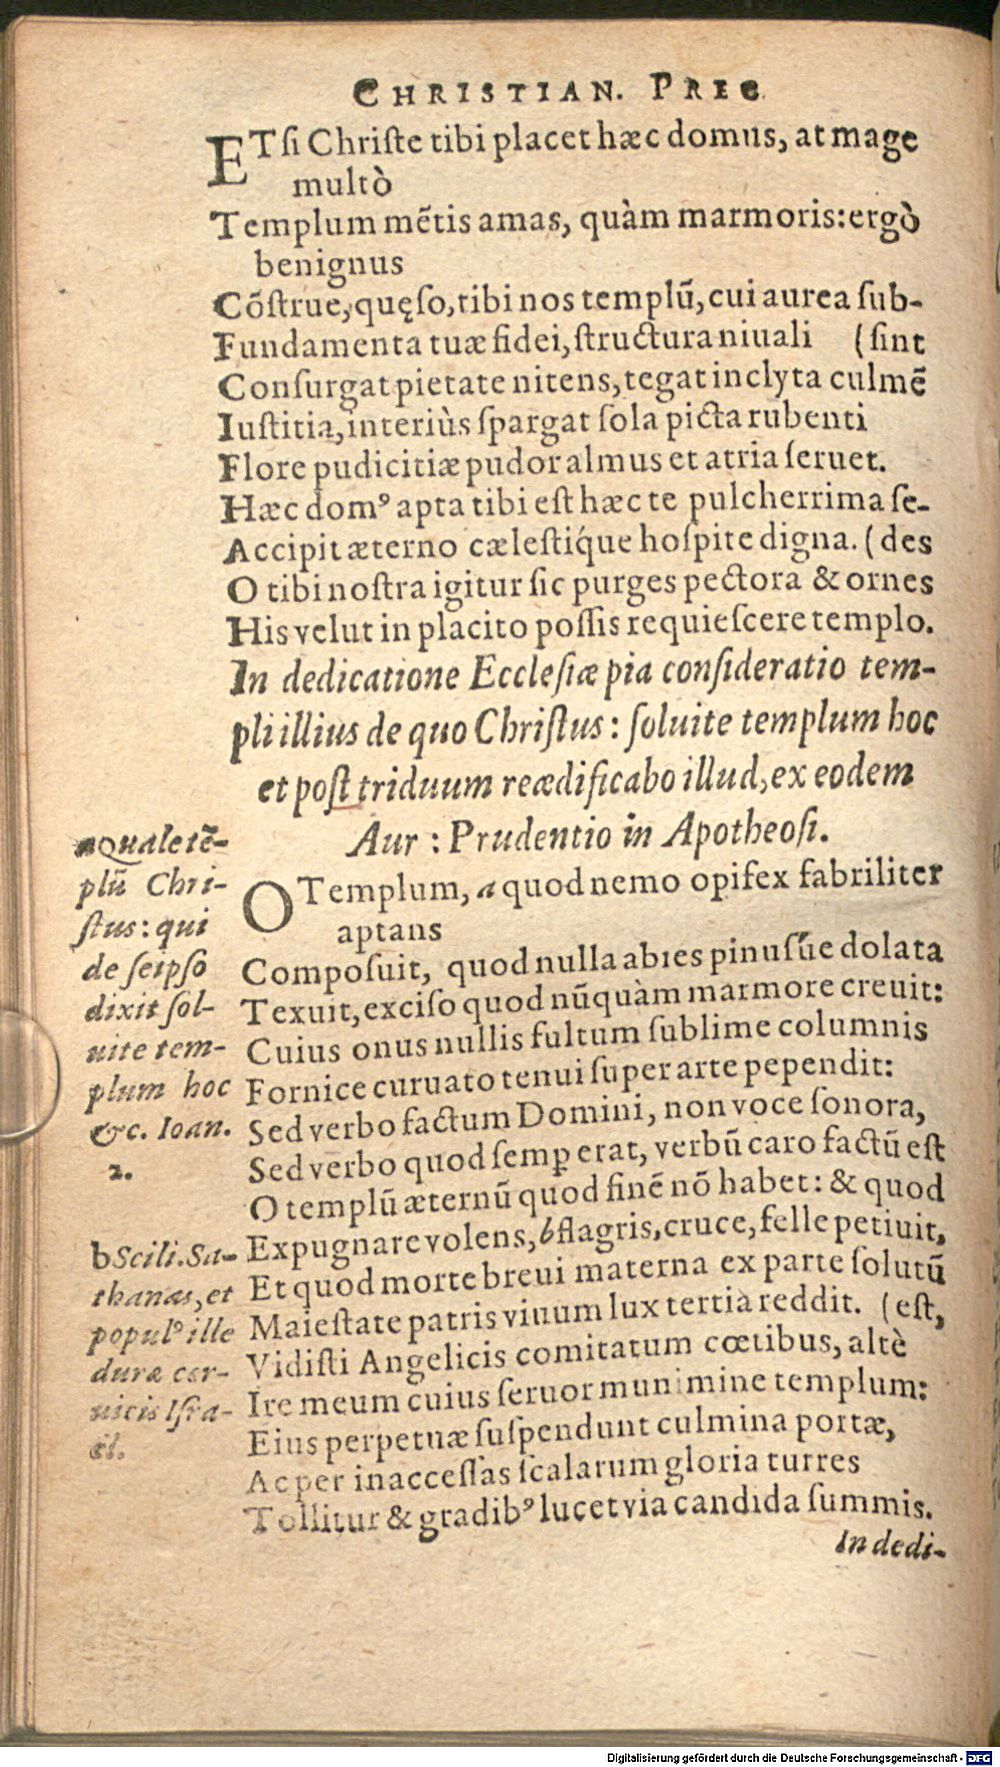 CHRISTIAN. PREC.
ETſi Chriſte tibi placet hæc domus, at mage
multò
Templum mẽtis amas, quàm marmoris: ergò
benignus
Cõſtrue, quęſo, tibi nos templũ, cui aurea ſub-
Fundamenta tuæ fidei, ſtructura niuali (ſint
Conſurgat pietate nitens, tegat inclyta culmẽ
Iuſtitia, interiùs ſpargat ſola picta rubenti
Flore pudicitiæ pudor almus et atria ſeruet.
Hæc domꝰ apta tibi eſt hæc te pulcherrima ſe-
Accipit æterno cæleſtiq́ue hoſpite digna. (des
O tibi noſtra igitur ſic purges pectora & ornes
His velut in placito poſſis requieſcere templo.
In dedicatione Eccleſiæ pia conſideratio tem-
pli illius de quo Chriſtus: ſoluite templum hoc
et poſt triduum reædificabo illud, ex eodem
Aur: Prudentio in Apotheoſi.
O Templum, a quod nemo opifex fabriliter
aptans
Compoſuit, quod nulla abies pinusúe dolata
Texuit, exciſo quod nũquàm marmore creuit:
Cuius onus nullis fultum ſublime columnis
Fornice curuato tenui ſuper arte pependit:
Sed verbo factum Domini, non voce ſonora,
Sed verbo quod ſemꝑ erat, verbũ caro factũ eſt
O templũ æternũ quod finẽ nõ habet: & quod
Expugnare volens, b flagris, cruce, felle petiuit,
Et quod morte breui materna ex parte ſolutũ
Maieſtate patris viuum lux tertia reddit. (eſt,
Vidiſti Angelicis comitatum cœtibus, altè
Ire meum cuius ſeruor munimine templum:
Eius perpetuæ ſuſpendunt culmina portæ,
Ac per inacceſſas ſcalarum gloria turres
Tollitur & gradibꝰ lucet via candida ſummis.
In dedi-
a Quale tẽ-
plũ Chri-
ſtus: qui
de ſeipſo
dixit ſol-
uite tem-
plum hoc
&c. Ioan.
2.
b Scili. Sa-
thanas, et
populꝰ ille
duræ cer-
uicis Iſra-
él.
Digitalisierung gefördert durch die Deutsche Forschungsgemeinschaft - DFG